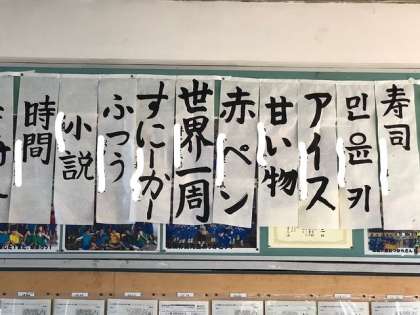 寿司
민윤키
アイス
甘い物
赤ペン
世界一周
すにーかー
ふつう
小説
時間